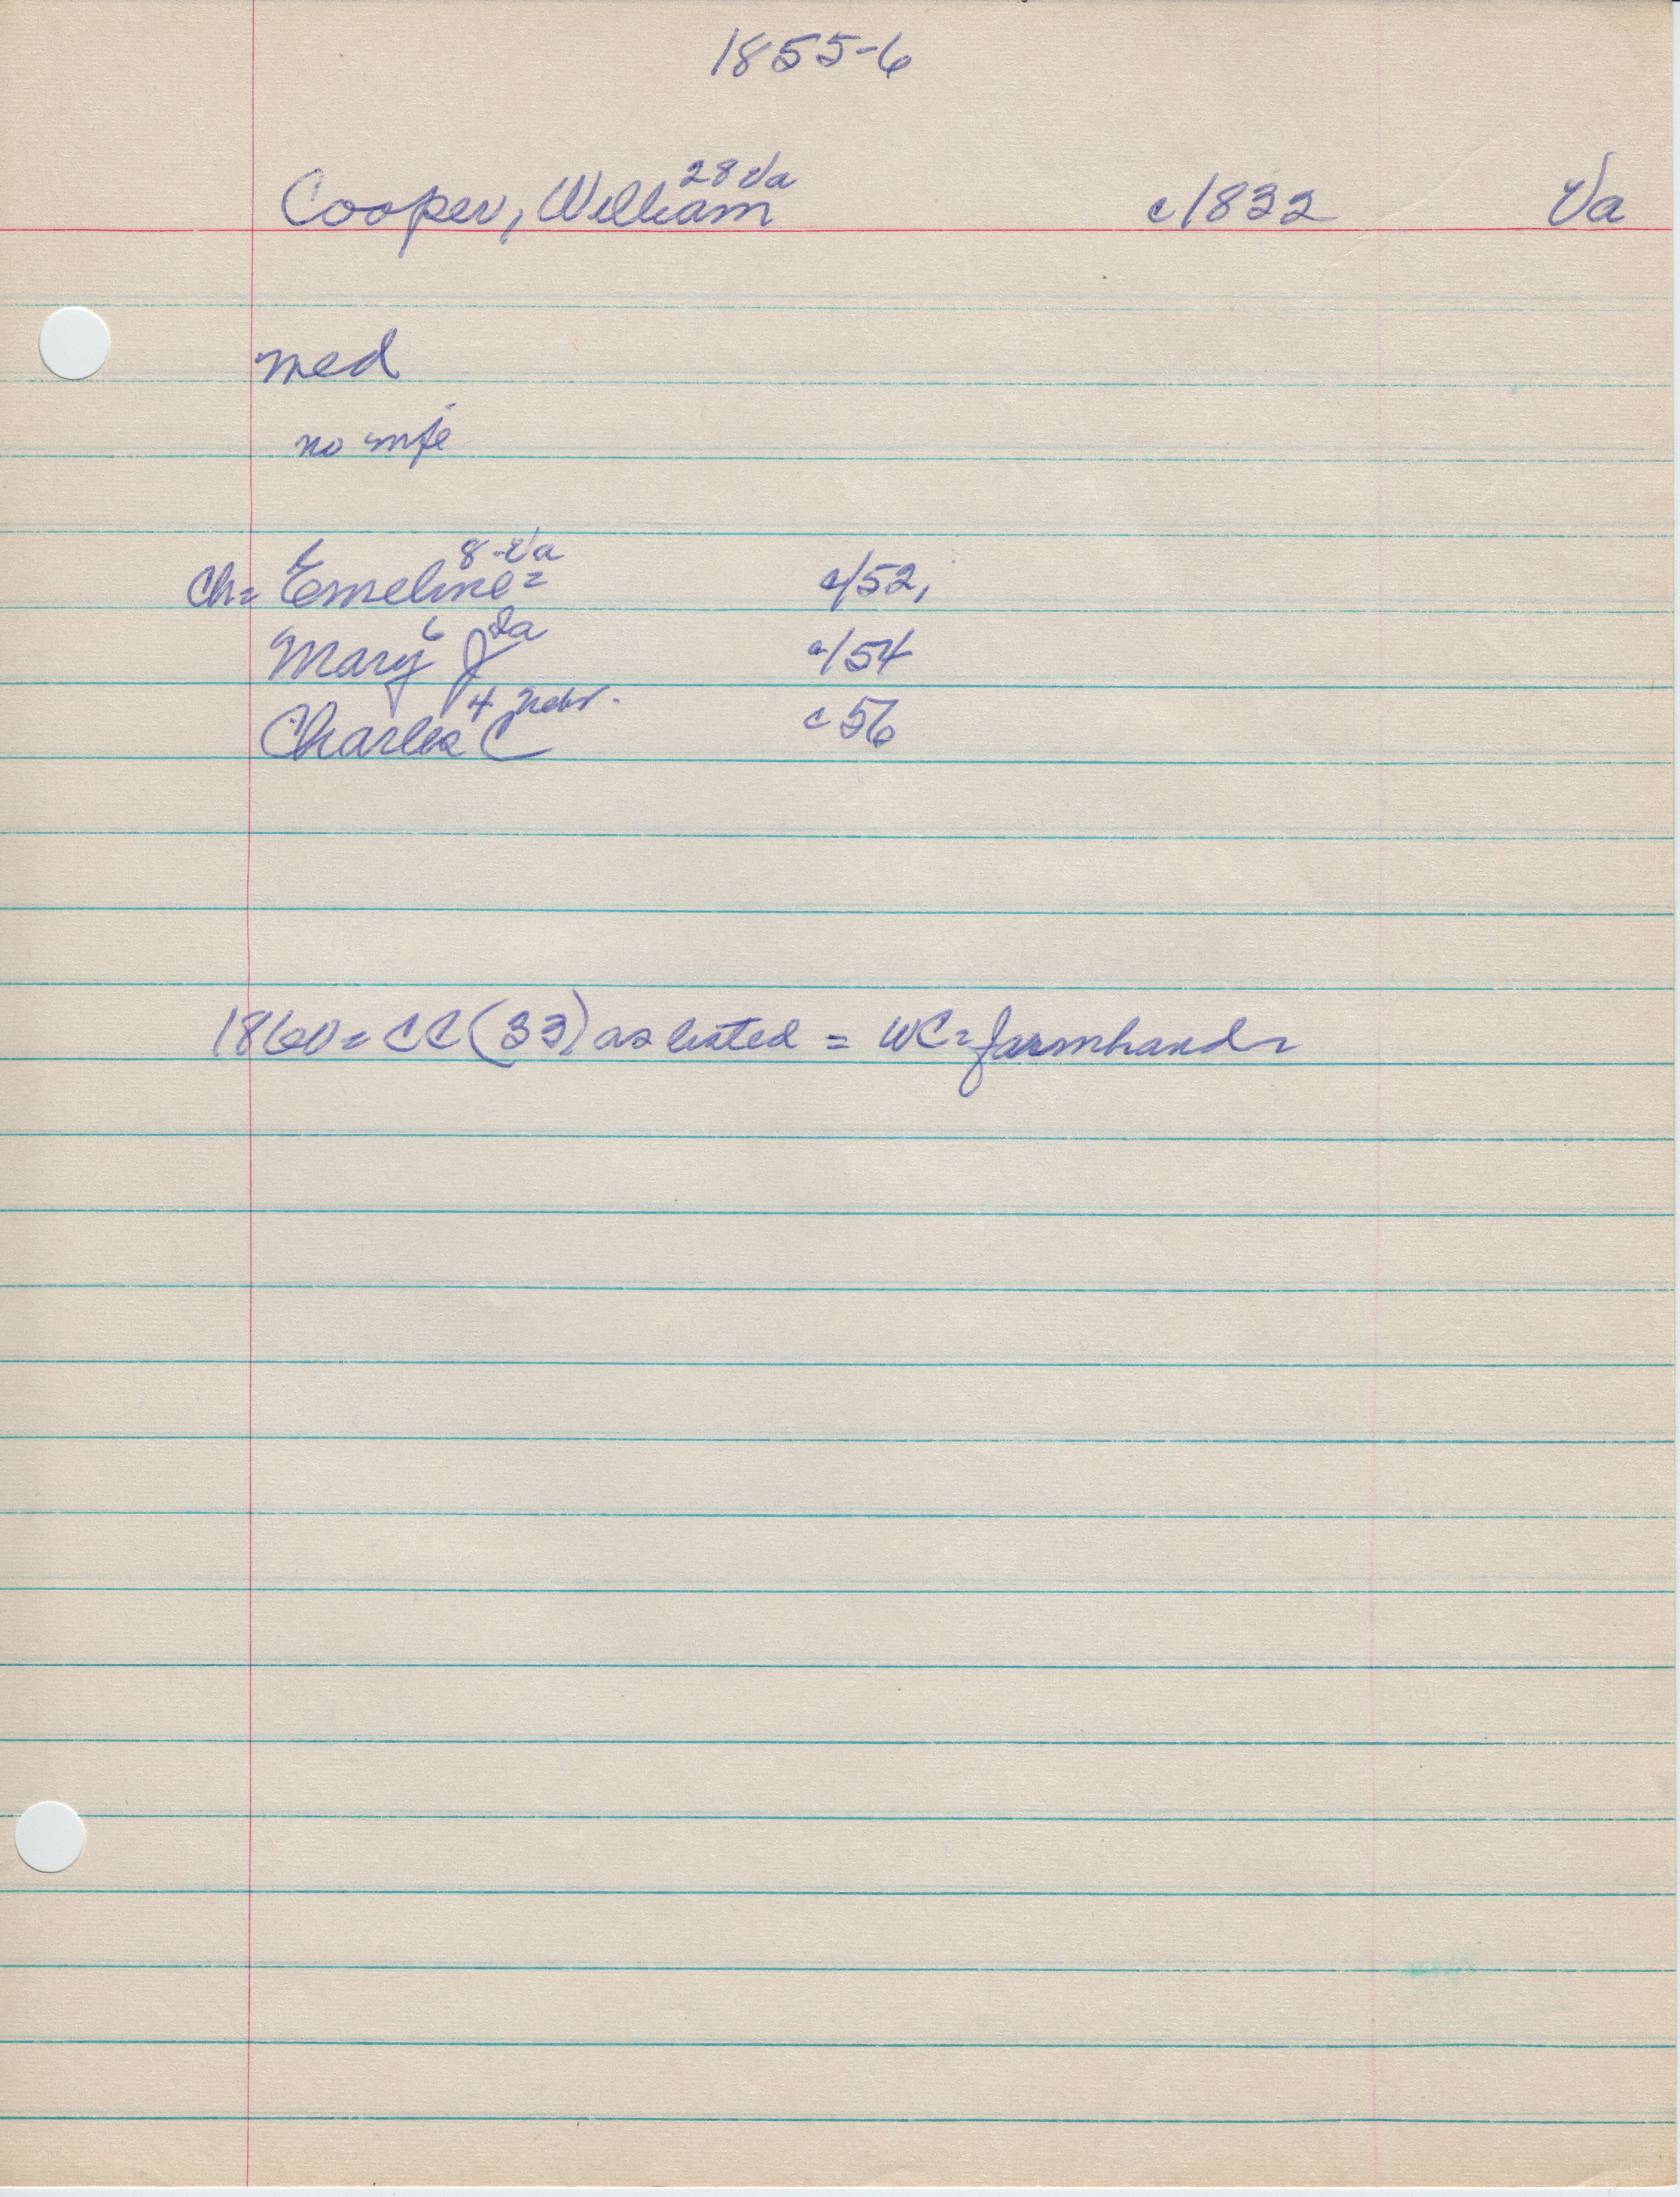 1855-6
Cooper, William 28 Va c1832 Va
med
no wife
Ch= Emeline= 8-Va c/52,
Mary J 6 Ia c/54
Charles C 4 Nebr. c56
1860= CC (33) as listed = WC= farmhand=